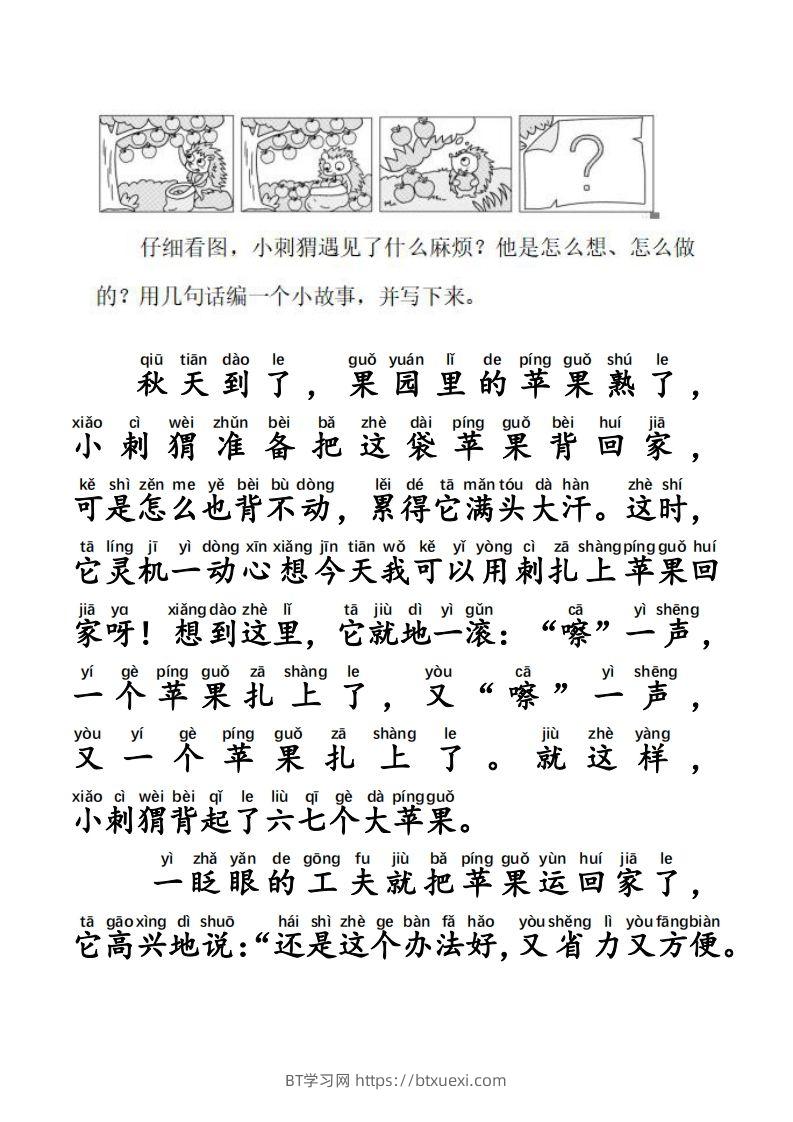 ?
仔细看图，小刺猬遇见了什么麻烦？他是怎么想、怎么做
的？用几句话编一个小故事，并写下来。
qiū tiān dào le guǒ yuán lǐ de píng guǒ shú le
秋天到了，果园里的苹果熟了，
xiǎo cì wèi zhǔn bèi bǎ zhè dài píng guǒ bèi huí jiā
小刺猬准备把这袋苹果背回家，
kě shì zěn me yě bèi bù dòng lěi dé tā mǎn tóu dà hàn zhè shí
可是怎么也背不动，累得它满头大汗。这时，
tā líng jī yì dòng xīn xiǎng jīn tiān wǒ kě yǐ yòng cì zā shàng píng guǒ huí
它灵机一动心想今天我可以用刺扎上苹果回
jiā ya xiǎng dào zhè lǐ tā jiù dì yì gǔn cā yì shēng
家呀！想到这里，它就地一滚：“嚓”一声，
yí gè píng guǒ zā shàng le yòu cā yì shēng
一个苹果扎上了，又“嚓”一声，
yòu yí gè píng guǒ zā shàng le jiù zhè yàng
又一个苹果扎上了。就这样，
xiǎo cì wèi bèi qǐ le liù qī gè dà píng guǒ
小刺猬背起了六七个大苹果。
yì zhǎ yǎn de gōng fu jiù bǎ píng guǒ yùn huí jiā le
一眨眼的工夫就把苹果运回家了，
tā gāo xìng dì shuō hái shì zhè ge bàn fǎ hǎo yòu shěng lì yòu fāng biàn
它高兴地说：“还是这个办法好，又省力又方便。
BT学习网 https://btxuexi.com